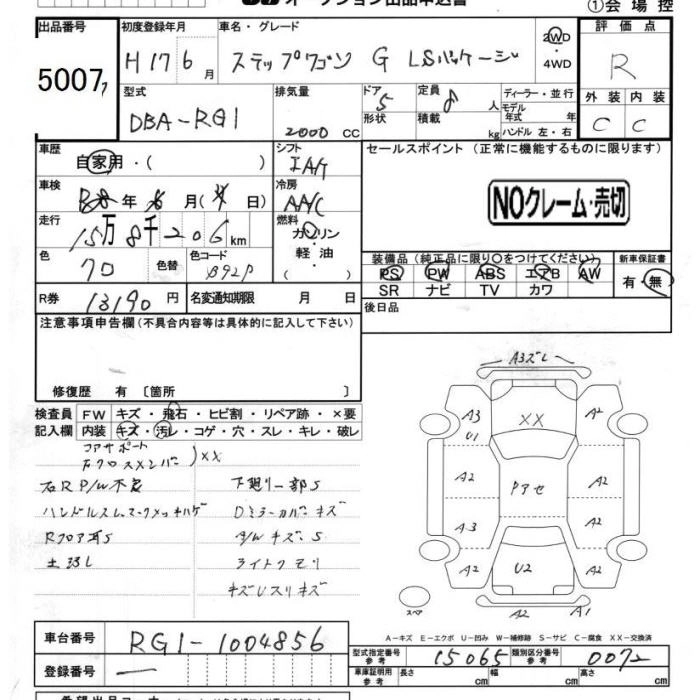 オークション出品申込書
①会場控
出品番号
5007
初度登録年月
H17 6月
車名・グレード
ステップワゴン G LSパッケージ
2WD
・
4WD
評価点
R
型式
DBA-RG1
排気量
2000 CC
ドア 5
形状
定員 8 人
積載 kg
ディーラー・並行
モデル
年式 年
ハンドル 左・右
外装 内装
C C
車歴
自家用・( )
シフト
IAT
セールスポイント (正常に機能するものに限ります)
NOクレーム・売切
車検
年 月( 日)
冷房
AAC
走行
15万8千206km
燃料
ガソリン
・
軽油
( )
色
クロ
色替
色コード
B92P
装備品 (純正品に限り○をつけてください)
PS PW ABS エアB AW
SR ナビ TV カワ
新車保証書
有・無
R券
13190円
名変通知期限 月 日
後日品
注意事項申告欄 (不具合内容等は具体的に記入して下さい)
修復歴 有 〔箇所 〕
検査員
記入欄
FW キズ・飛石・ヒビ割・リペア跡・×要
内装 キズ・汚レ・コゲ・穴・スレ・キレ・破レ
コアサポート
右クロスメンバー )XX
右R P/W不良
下廻リ一部S
Dミラーカバーキズ
RフロアS
A/WキズS
ライトクモリ
キズUスリキズ
A3ズレ
A3
U1
XX
A2
A2
Pアセ
A2
A3
A2
A2
U2
A2
A2
A1
スペア
A-キズ E-エクボ U-凹み W-補修跡 S-サビ C-腐食 XX-交換済
車台番号
RG1-1004856
登録番号
—
型式指定番号
参考
15065
類別区分番号
参考
0072
車庫証明用
参考
長さ cm
幅 cm
高さ cm
希望出品コーナー